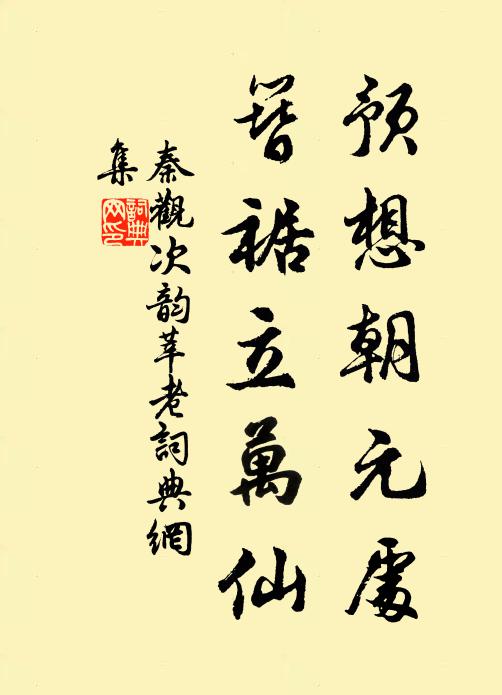 預想朝元處
簪裾立萬仙
秦觀次韵莘老詞典網
集
詞典
网印